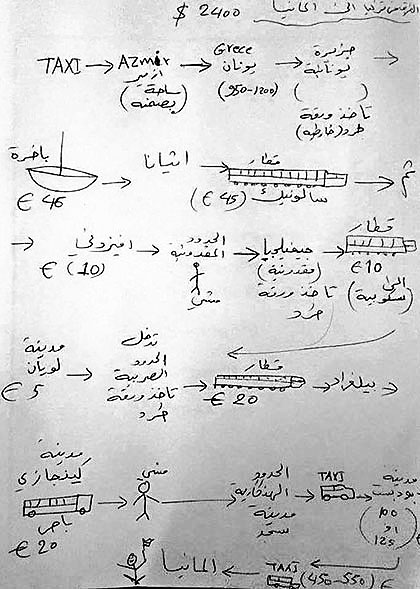 من تركيا الى المانيا $ 2400
TAXI → AZmir → Grece → جزيرة →
ازمير يونان يونانية
(ساحة بصمنه) (950-1200) ( )
تاخذ ورقة
طرد (خارطيه)
باخرة → اثيانا → قطار → ثم
€ 45 (€ 45) سالونيك
→ افيزوني → الحدود المقدونية → جيفيليجيا → قطار
€ (10) مشي (مقدونية) € 10
تاخذ ورقة طرد (الى سكوبية)
مدينة لوبان → تدخل الحدود الصربية → قطار → بيلغراد →
€ 5 تاخذ ورقة طرد € 20
مدينة كينجازي → مشي → الحدود الهنغارية → TAXI → مدينة بودبست
باص مدينة سجد (100 او 125)
€ 20
المانيا ← TAXI (450-550) €